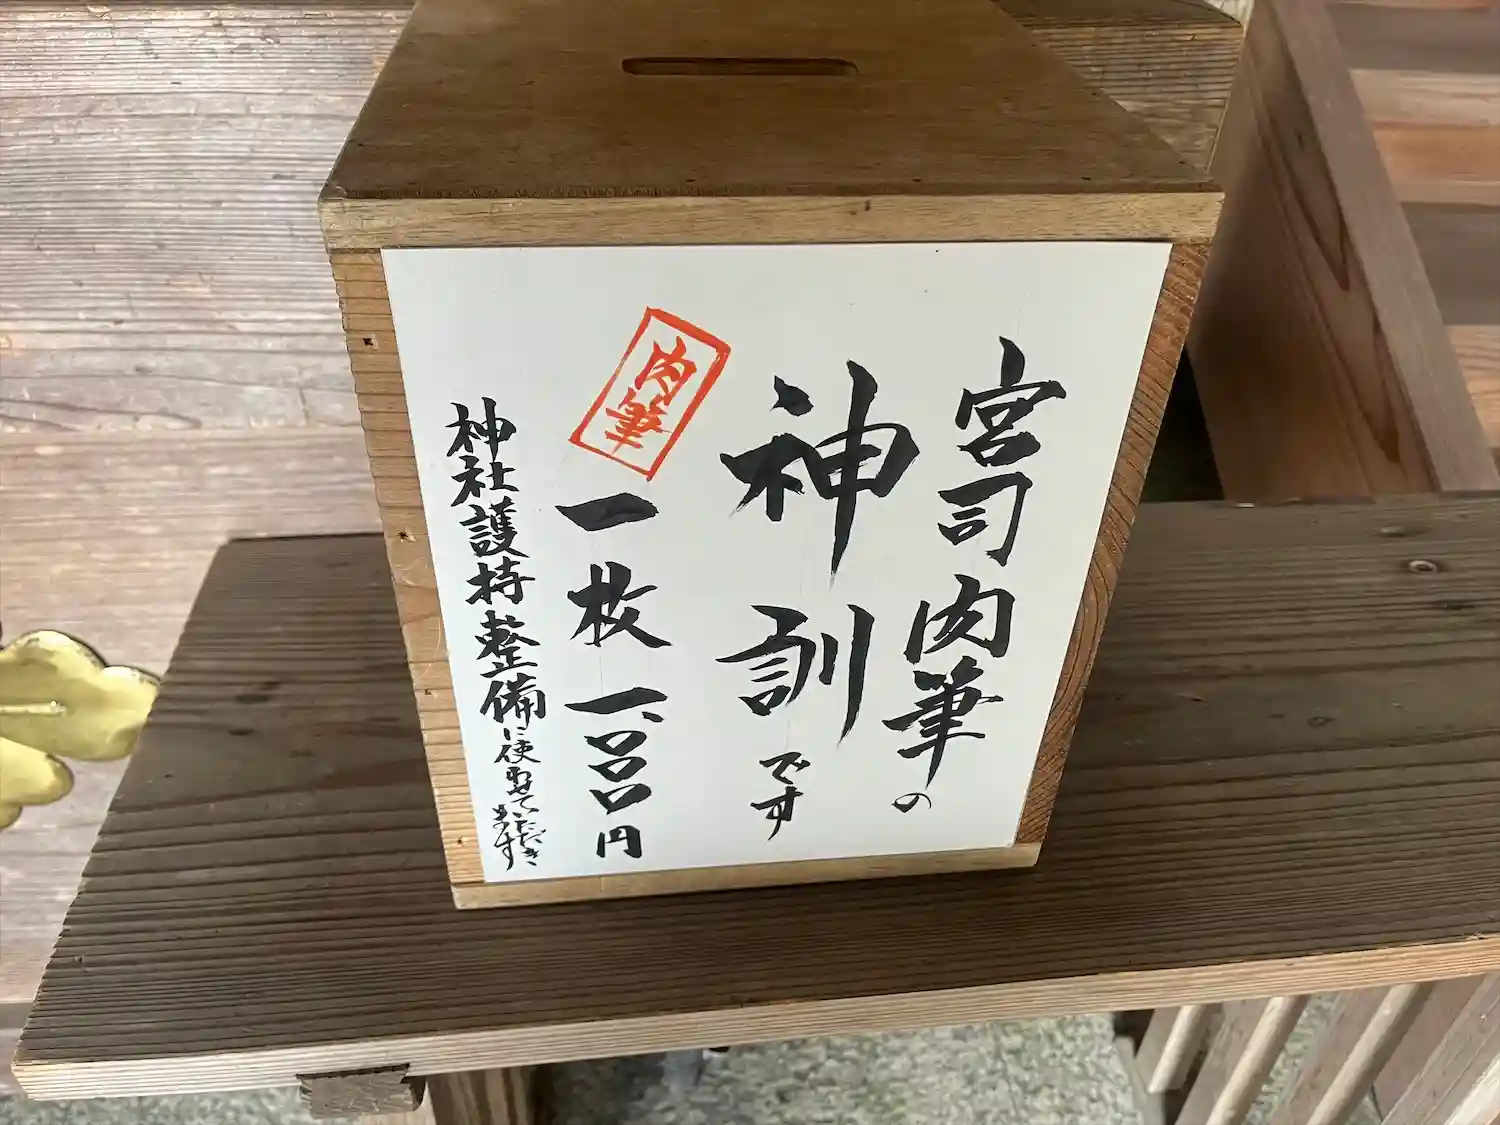 宮司肉筆の
神訓です
肉筆
一枚 一、〇〇〇円
神社護持整備に使わせていただき
ます